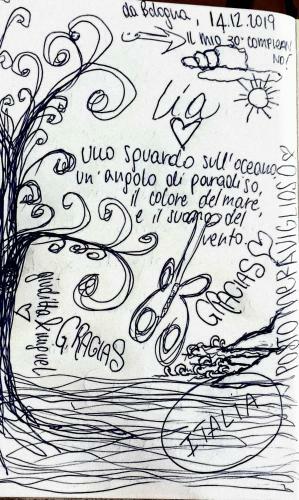 da Bologna, 14.12.2019
IL MIO 30° COMPLEAN
NO!
Lia
Uno sguardo sull'oceano
un'angolo di paradiso,
il colore del mare,
e il suono del
vento
GRACIAS
GRAGIAS
giuditta &
MERAVIGLIOSO
ITALIA